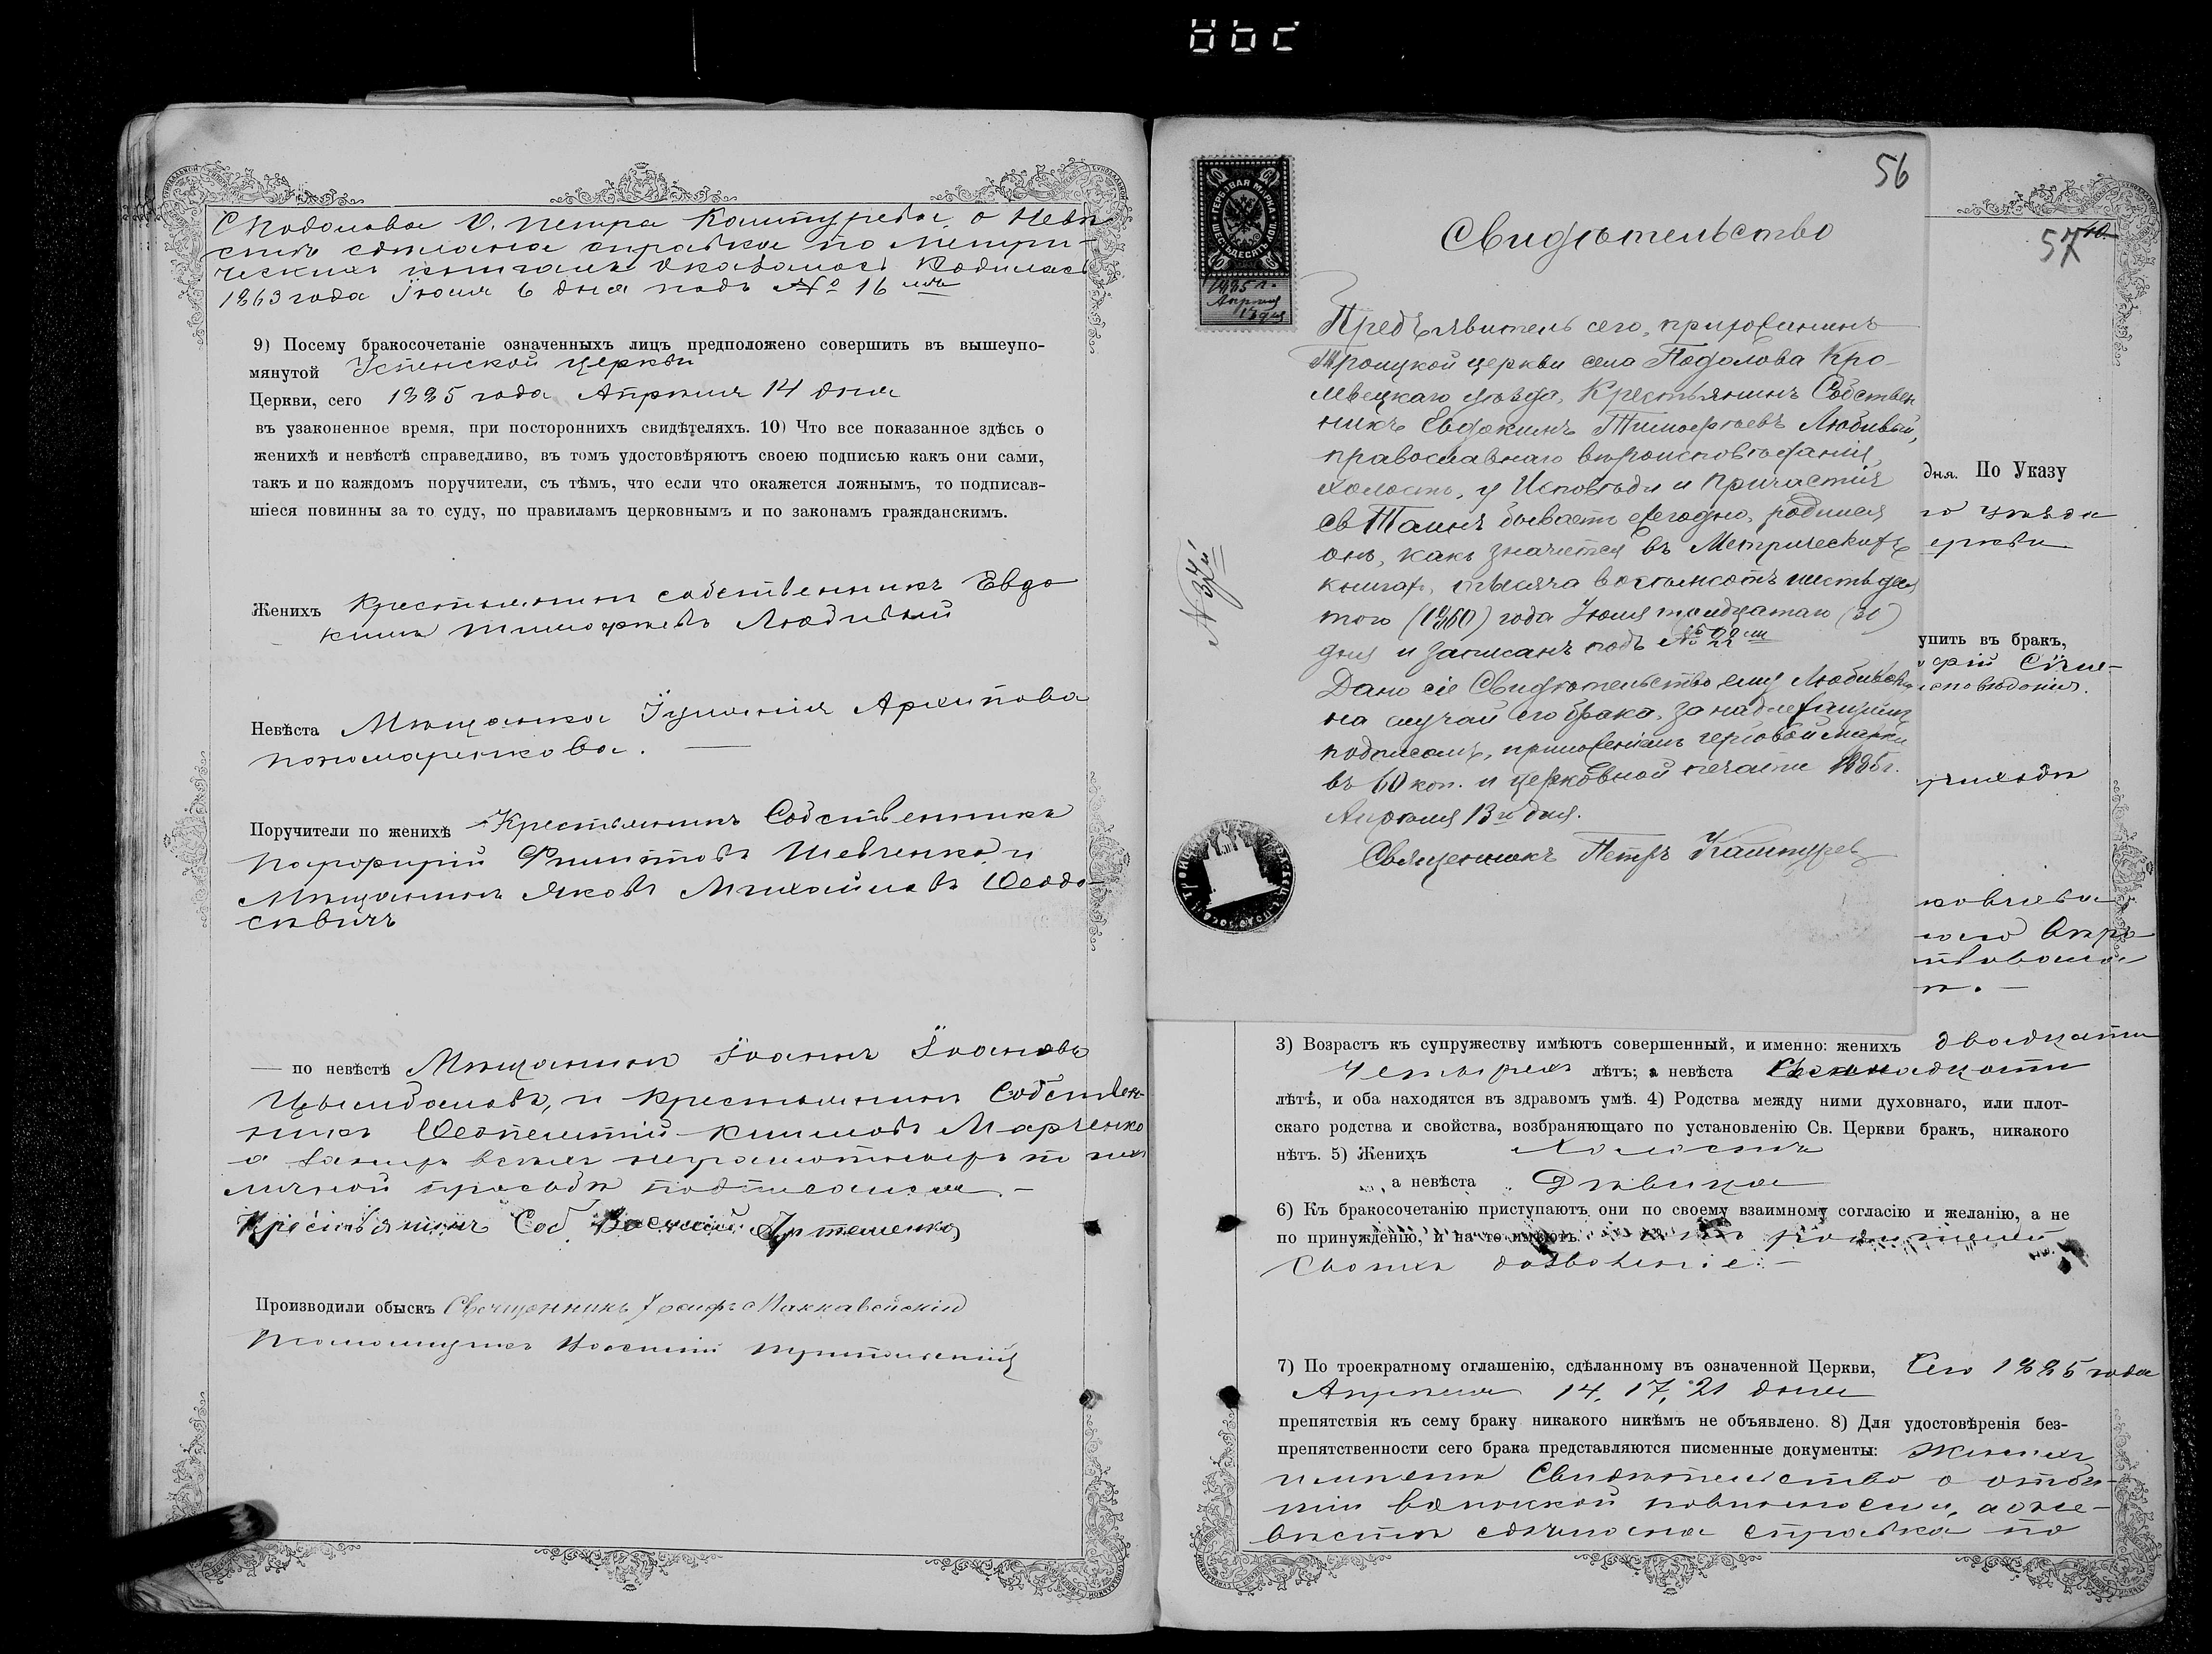 С Подолова О. Петра Каштурева, о Невѣ-
стѣ сдѣлана справка по метри-
ческимъ книгамъ оказалось Родилась
1863 года Іюля 6 дня подъ № 16 мъ
9) Посему бракосочетаніе означенныхъ лицъ предположено совершить въ вышеупо-
мянутой Успенской церкви
Церкви, сего 1885 года Апрѣля 14 дня
въ узаконенное время, при постороннихъ свидѣтеляхъ. 10) Что все показанное здѣсь о
женихѣ и невѣстѣ справедливо, въ томъ удостовѣряютъ своею подписью какъ они сами,
такъ и по каждомъ поручители, съ тѣмъ, что если что окажется ложнымъ, то подписав-
шіеся повинны за то суду, по правиламъ церковнымъ и по законамъ гражданскимъ.
Женихъ Крестьянинъ собственникъ Евдо
кимъ Тимофѣевъ Любивый
Невѣста Мѣщанка Іуліанія Архипова
Пономаренкова.
Поручители по женихѣ Крестьянинъ Собственникъ
Порфирій Филиповъ Шевченко, и
Мѣщанинъ Яковъ Михайловъ Феодо-
сѣвичъ
— по невѣстѣ Мѣщанинъ Іоаннъ Іоановъ
Цымбаловъ, и Крестьянинъ Собствен-
никъ Климовъ Марченко
а за всѣхъ неграмотныхъ по ихъ
личной прозьбѣ подписался —
Крестьянинъ Соб. Василій Артеменко
Производили обыскъ Священникъ Іосифъ Маккавейскій
Псаломщикъ Василій
56
Свидѣтельство
1885 г.
Апрѣля
13 дня
ГЕРБОВАЯ МАРКА
ШЕСТЬДЕСЯТЪ КОП.
Предъявитель сего, прихожанинъ
Троицкой церкви села Подолова Кро-
левецкаго уѣзда, Крестьянинъ Собствен
никъ Евдокимъ Тимофѣевъ Любивый,
православнаго вѣроисповѣданія,
холостъ, у Исповѣди и Причастія
Св Таинъ бываетъ ежегодно, родился
онъ, какъ значится въ Метрическихъ
книгахъ, тысяча восемьсотъ шестьдеся
того (1860) года Іюля тридцатаго (30)
дня и записанъ подъ № 22 мъ
Дано сіе Свидѣтельство ему Любивому
на случай его брака, за надлежащимъ
подписомъ, приложеніемъ гербовой марки
въ 60 коп. и церковной печати 1885 г.
Апрѣля 13 го дня.
Священникъ Петръ Каштурев
№ 34й
57
дня. По Указу
го уѣзда
церкви
упить въ бракъ,
3) Возрастъ къ супружеству имѣютъ совершенный, и именно: женихъ двадцати
Четырехъ лѣтъ; а невѣста
лѣтъ, и оба находятся въ здравомъ умѣ. 4) Родства между ними духовнаго, или плот-
скаго родства и свойства, возбраняющаго по установленію Св. Церкви бракъ, никакого
нѣтъ. 5) Женихъ Холостъ
а невѣста Дѣвица
6) Къ бракосочетанію приступаютъ они по своему взаимному согласію и желанію, а не
по принужденію, и на то имѣютъ родителей
Своихъ дозволеніе. —
7) По троекратному оглашенію, сдѣланному въ означенной Церкви, Сего 1885 года
Апрѣля 14, 17, 21 дня
препятствія къ сему браку никакого никѣмъ не объявлено. 8) Для удостовѣренія без-
препятственности сего брака представляются писменные документы: Женихъ
Свидѣтельство о отбы-
тіи воинской повинности, а о не-
вѣстѣ сдѣлана справка по